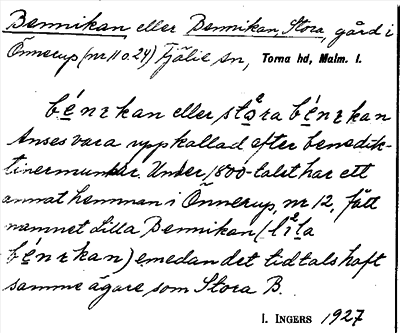 Bennikan eller Bennikan, Stora, gård i
Önnerup (nr 11 o. 24) Fjälie sn, Torna hd, Malm. l.
bénɪkan eller stǫ̊ra bénɪkan
Anses vara uppkallad efter benedik-
tinermunkar. Under 1800-talet har ett
annat hemman i Önnerup, nr 12, fått
namnet Lilla Bennikan (lila
bénɪkan) emedan det tidtals haft
samme ägare som Stora B.
I. INGERS 1927